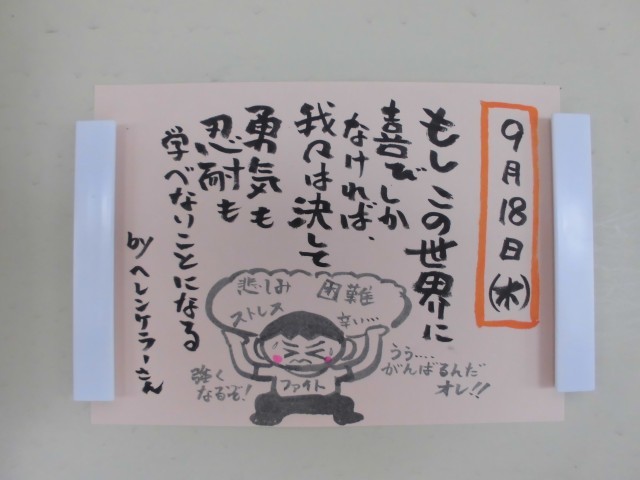 9月18日(木)
もしこの世界に
喜びしか
なければ、
我々は決して
勇気も
忍耐も
学べないことになる
byヘレンケラーさん
悲しみ
困難
ストレス
辛い…
ファイト
強く
なるぞ!
うぅ....
がんばるんだ
オレ!!